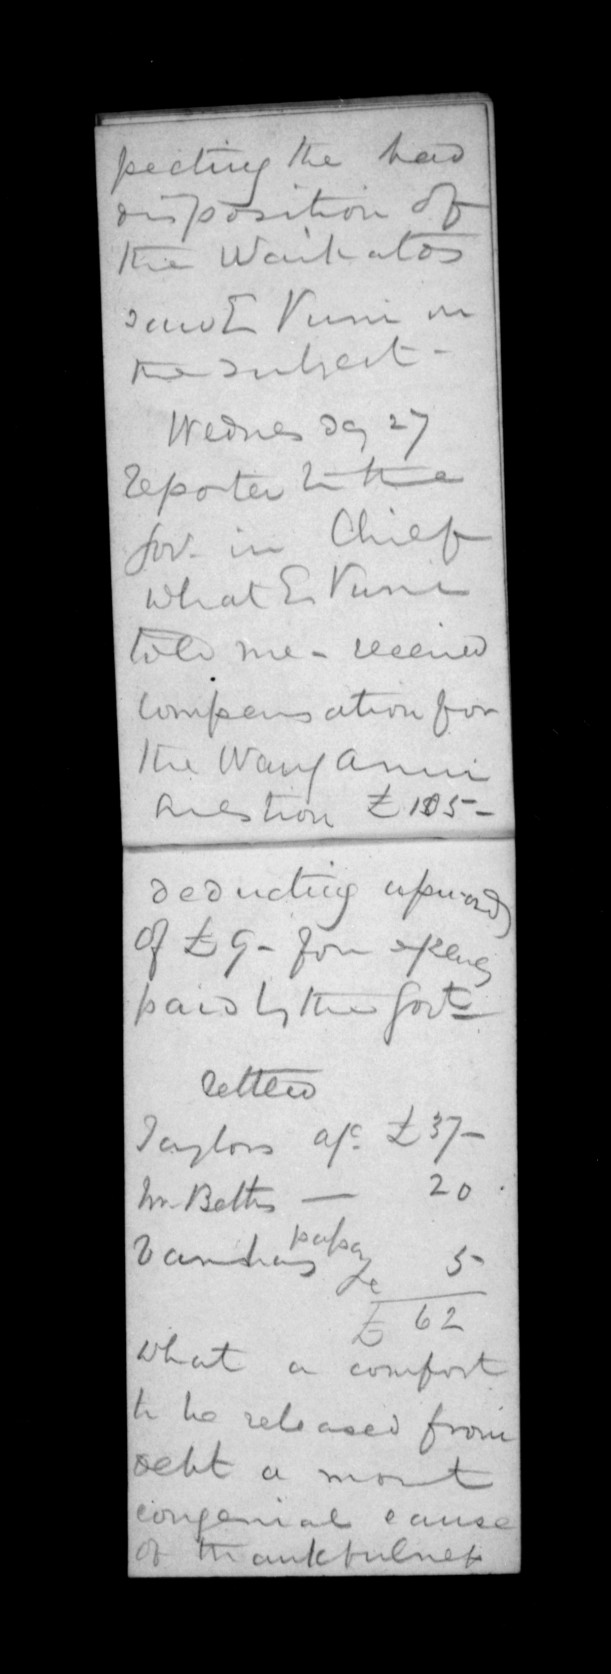 pecting the bad
disposition of
the Waikatos
saw E Puni on
the subject -
Wednesday 27
reported to the
Gov. in Chief
what E. Puni
told me - received
compensation for
the Wanganui
question £ 105 -
deducting upwards
of £ 9 - for expenses
paid by the Govt
settled
Taylors a/c. £ 37 -
Mr. Betts — 20
papa
5
£ 62
What a comfort
to be released from
debt a most
congenial cause
of thankfulness